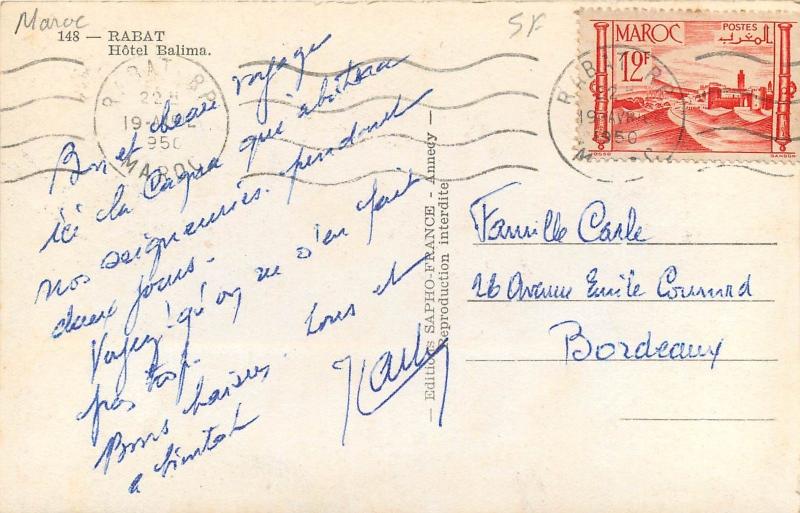 Maroc
148 — RABAT
Hôtel Balima.
5F
RABAT R.P
22H
19-AVRIL
1950
MAROC
MAROC
POSTES
المغرب
12F
RABAT R.P
22H
19-AVRIL
1950
Bon et beau voyage
ici la Cagna qui abritera
nos seigneuries pendant
deux jours.
Voyez! qu'on ne s'en fait
pas trop.
Bons baisers. tous et
a bientôt
— Editions SAPHO-FRANCE - Annecy —
Reproduction interdite
Famille Carle
26 Avenue Emile Counord
Bordeaux